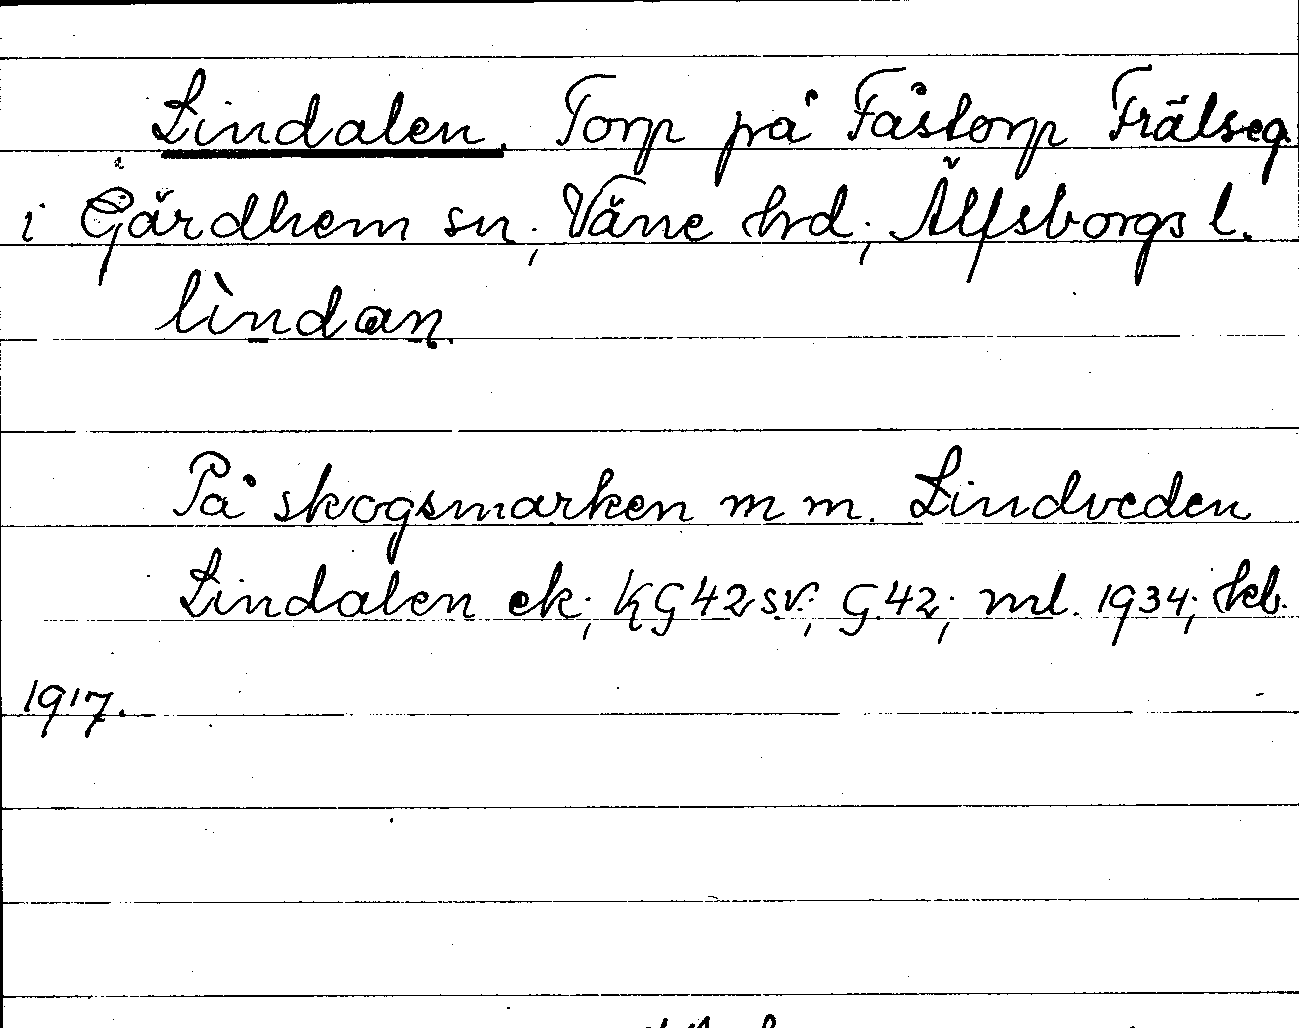 Lindalen. Torp på Fåstorp Frälseg.
i Gärdhem sn; Väne hrd; Älfsborgs l.
lìndan.
På skogsmarken m m. Lindveden
Lindalen ek; KG 42 sv.; G. 42; ml. 1934; hkb.
1917.